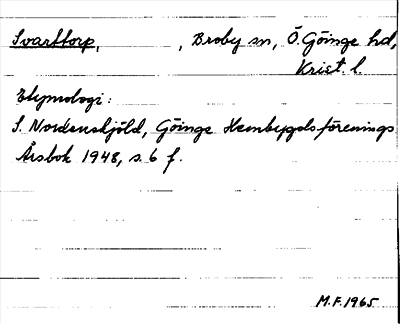 Svarttorp, , Broby sn, Ö. Göinge hd,
Krist. l.
Etymologi:
S. Nordenskjöld, Göinge Hembygdsförenings
Årsbok 1948, s. 6 f.
M.F. 1965